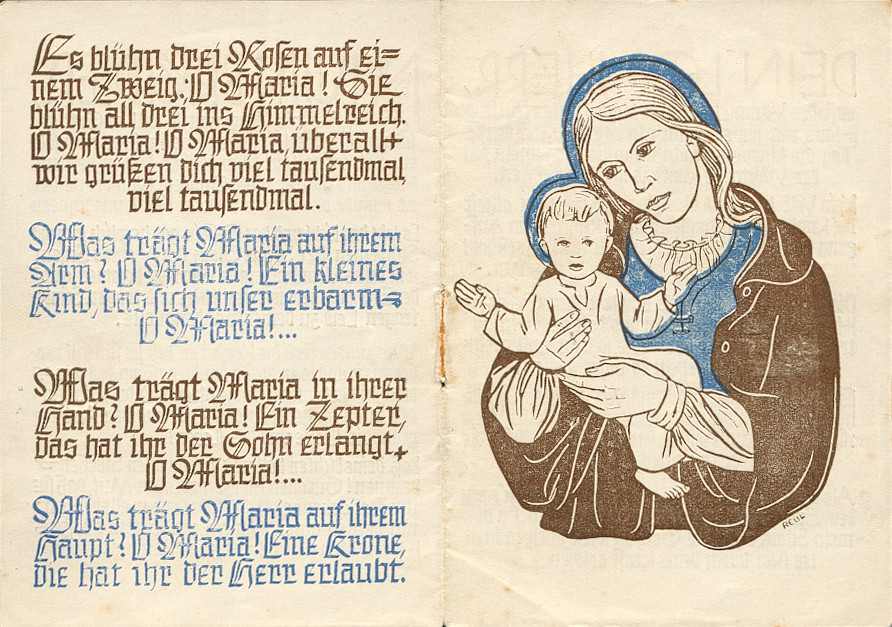 Es blühn drei Rosen auf ei=
nem Zweig. O Maria! Sie
blühn all drei ins Himmelreich.
O Maria! O Maria, überall+
wir grüßen dich viel tausendmal,
viel tausendmal.
Was trägt Maria auf ihrem
Arm? O Maria! Ein kleines
Kind, das sich unser erbarm=
O Maria!...
Was trägt Maria in ihrer
Hand? O Maria! Ein Zepter,
das hat ihr der Sohn erlangt+
O Maria!...
Was trägt Maria auf ihrem
Haupt? O Maria! Eine Krone,
die hat ihr der Herr erlaubt.
REUL